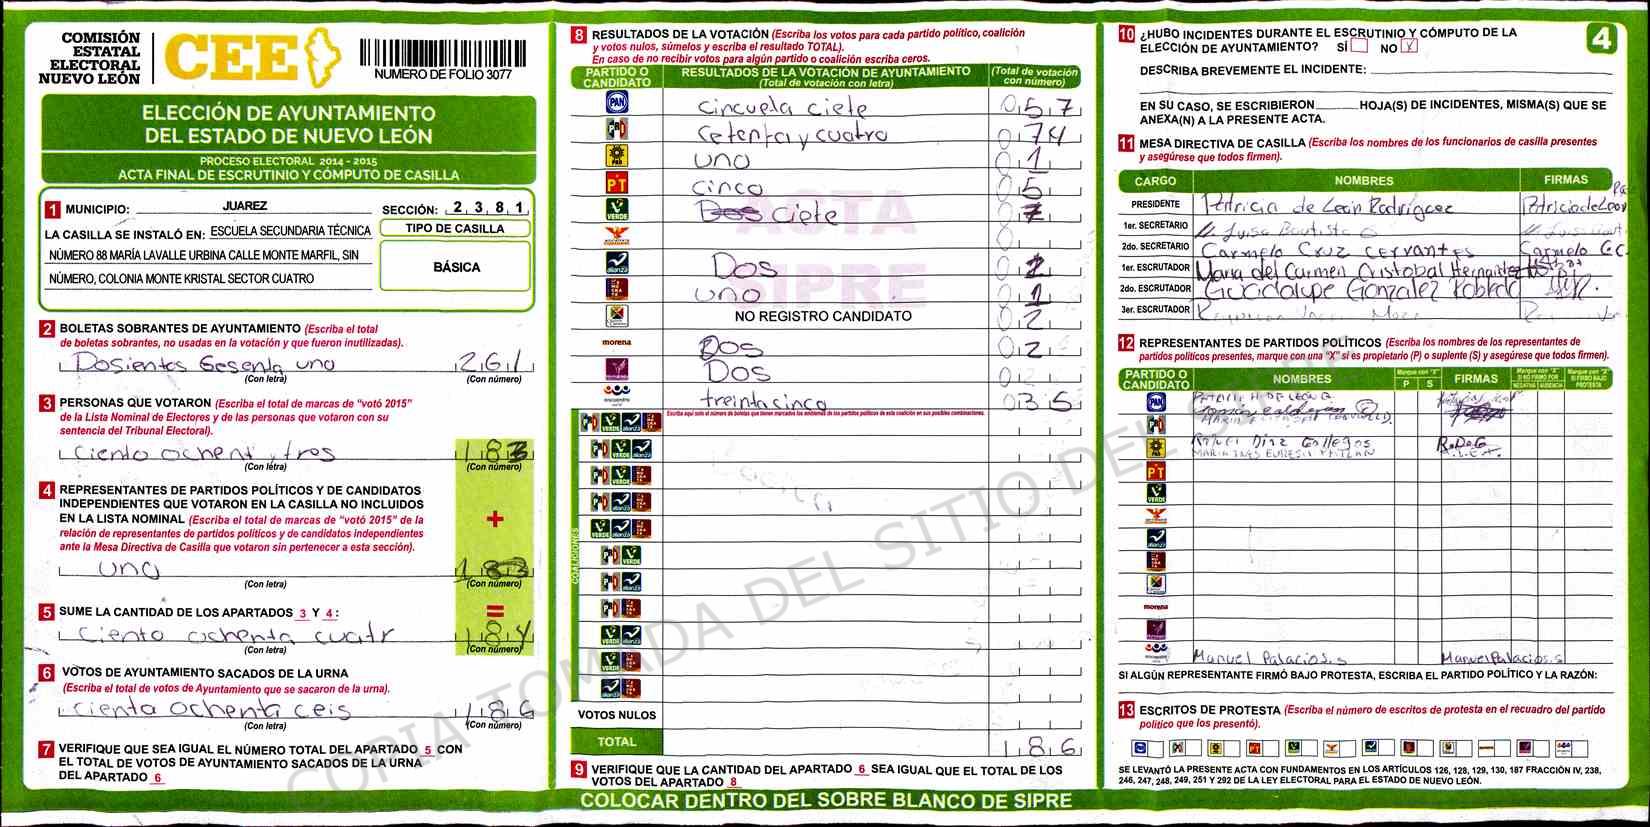 COMISIÓN
ESTATAL
ELECTORAL
NUEVO LEÓN
CEE
NUMERO DE FOLIO 3077
ELECCIÓN DE AYUNTAMIENTO
DEL ESTADO DE NUEVO LEÓN
PROCESO ELECTORAL 2014 - 2015
ACTA FINAL DE ESCRUTINIO Y CÓMPUTO DE CASILLA
1 MUNICIPIO: JUAREZ SECCIÓN: 2 3 8 1
LA CASILLA SE INSTALÓ EN: ESCUELA SECUNDARIA TÉCNICA
NÚMERO 88 MARÍA LAVALLE URBINA CALLE MONTE MARFIL, SIN
NÚMERO, COLONIA MONTE KRISTAL SECTOR CUATRO
TIPO DE CASILLA
BÁSICA
2 BOLETAS SOBRANTES DE AYUNTAMIENTO (Escriba el total
de boletas sobrantes, no usadas en la votación y que fueron inutilizadas).
Dosientos Sesenta uno 261
(Con letra) (Con número)
3 PERSONAS QUE VOTARON (Escriba el total de marcas de “votó 2015”
de la Lista Nominal de Electores y de las personas que votaron con su
sentencia del Tribunal Electoral).
Ciento ochent y tres 183
(Con letra) (Con número)
4 REPRESENTANTES DE PARTIDOS POLÍTICOS Y DE CANDIDATOS
INDEPENDIENTES QUE VOTARON EN LA CASILLA NO INCLUIDOS
EN LA LISTA NOMINAL (Escriba el total de marcas de “votó 2015” de la
relación de representantes de partidos políticos y de candidatos independientes
ante la Mesa Directiva de Casilla que votaron sin pertenecer a esta sección).
+
uno
(Con letra) (Con número)
5 SUME LA CANTIDAD DE LOS APARTADOS 3 Y 4: =
Ciento ochenta cuatr 184
(Con letra) (Con número)
6 VOTOS DE AYUNTAMIENTO SACADOS DE LA URNA
(Escriba el total de votos de Ayuntamiento que se sacaron de la urna).
Cienta ochenta ceis 186
(Con letra) (Con número)
7 VERIFIQUE QUE SEA IGUAL EL NÚMERO TOTAL DEL APARTADO 5 CON
EL TOTAL DE VOTOS DE AYUNTAMIENTO SACADOS DE LA URNA
DEL APARTADO 6
8 RESULTADOS DE LA VOTACIÓN (Escriba los votos para cada partido político, coalición
y votos nulos, súmelos y escriba el resultado TOTAL).
En caso de no recibir votos para algún partido o coalición escriba ceros.
PARTIDO O CANDIDATO
RESULTADOS DE LA VOTACIÓN DE AYUNTAMIENTO
(Total de votación con letra)
(Total de votación con número)
PAN cincuela ciete 057
PRD cetenta y cuatro 074
PRD uno 0 1
PT cinco 0 5
VERDE ciete 0 7
0
alianza Dos 0 2
uno 0 1
NO REGISTRO CANDIDATO 0 2
morena Dos 0 2
Dos 0 2
encuentro treintacinco 035
ACTA
SIPRE
Escriba aquí solo el número de boletas que tienen marcados los emblemas de los partidos políticos de esta coalición en sus posibles combinaciones.
COALICIONES
VOTOS NULOS
TOTAL 186
9 VERIFIQUE QUE LA CANTIDAD DEL APARTADO 6 SEA IGUAL QUE EL TOTAL DE LOS
VOTOS DEL APARTADO 8
COLOCAR DENTRO DEL SOBRE BLANCO DE SIPRE
4
10 ¿HUBO INCIDENTES DURANTE EL ESCRUTINIO Y CÓMPUTO DE LA
ELECCIÓN DE AYUNTAMIENTO? SÍ NO X
DESCRIBA BREVEMENTE EL INCIDENTE:
EN SU CASO, SE ESCRIBIERON HOJA(S) DE INCIDENTES, MISMA(S) QUE SE
ANEXA(N) A LA PRESENTE ACTA.
11 MESA DIRECTIVA DE CASILLA (Escriba los nombres de los funcionarios de casilla presentes
y asegúrese que todos firmen).
CARGO NOMBRES FIRMAS
PRESIDENTE Patricia de León Rodríguez Patricia de Leon
1er. SECRETARIO Luisa Bautista G
2do. SECRETARIO Carmelo Cruz Cervantes Carmelo C.C.
1er. ESCRUTADOR Maria del Carmen Cristobal Hernandez
2do. ESCRUTADOR Guadalupe Gonzalez Robledo
3er. ESCRUTADOR
12 REPRESENTANTES DE PARTIDOS POLÍTICOS (Escriba los nombres de los representantes de
partidos políticos presentes, marque con una “X” si es propietario (P) o suplente (S) y asegúrese que todos firmen).
PARTIDO O CANDIDATO NOMBRES Marque con “X” P S FIRMAS Marque con “X” SI NO FIRMÓ POR NEGATIVA AUSENCIA Marque con “X” SI FIRMÓ BAJO PROTESTA
PAN
Rafael Diaz Gallegos R.D.G
PT
VERDE
morena
Manuel Palacios.s Manuel Palacios.s
SI ALGÚN REPRESENTANTE FIRMÓ BAJO PROTESTA, ESCRIBA EL PARTIDO POLÍTICO Y LA RAZÓN:
13 ESCRITOS DE PROTESTA (Escriba el número de escritos de protesta en el recuadro del partido
político que los presentó).
SE LEVANTÓ LA PRESENTE ACTA CON FUNDAMENTOS EN LOS ARTÍCULOS 126, 128, 129, 130, 187 FRACCIÓN IV, 238,
246, 247, 248, 249, 251 Y 292 DE LA LEY ELECTORAL PARA EL ESTADO DE NUEVO LEÓN.
COPIA TOMADA DEL SITIO DEL